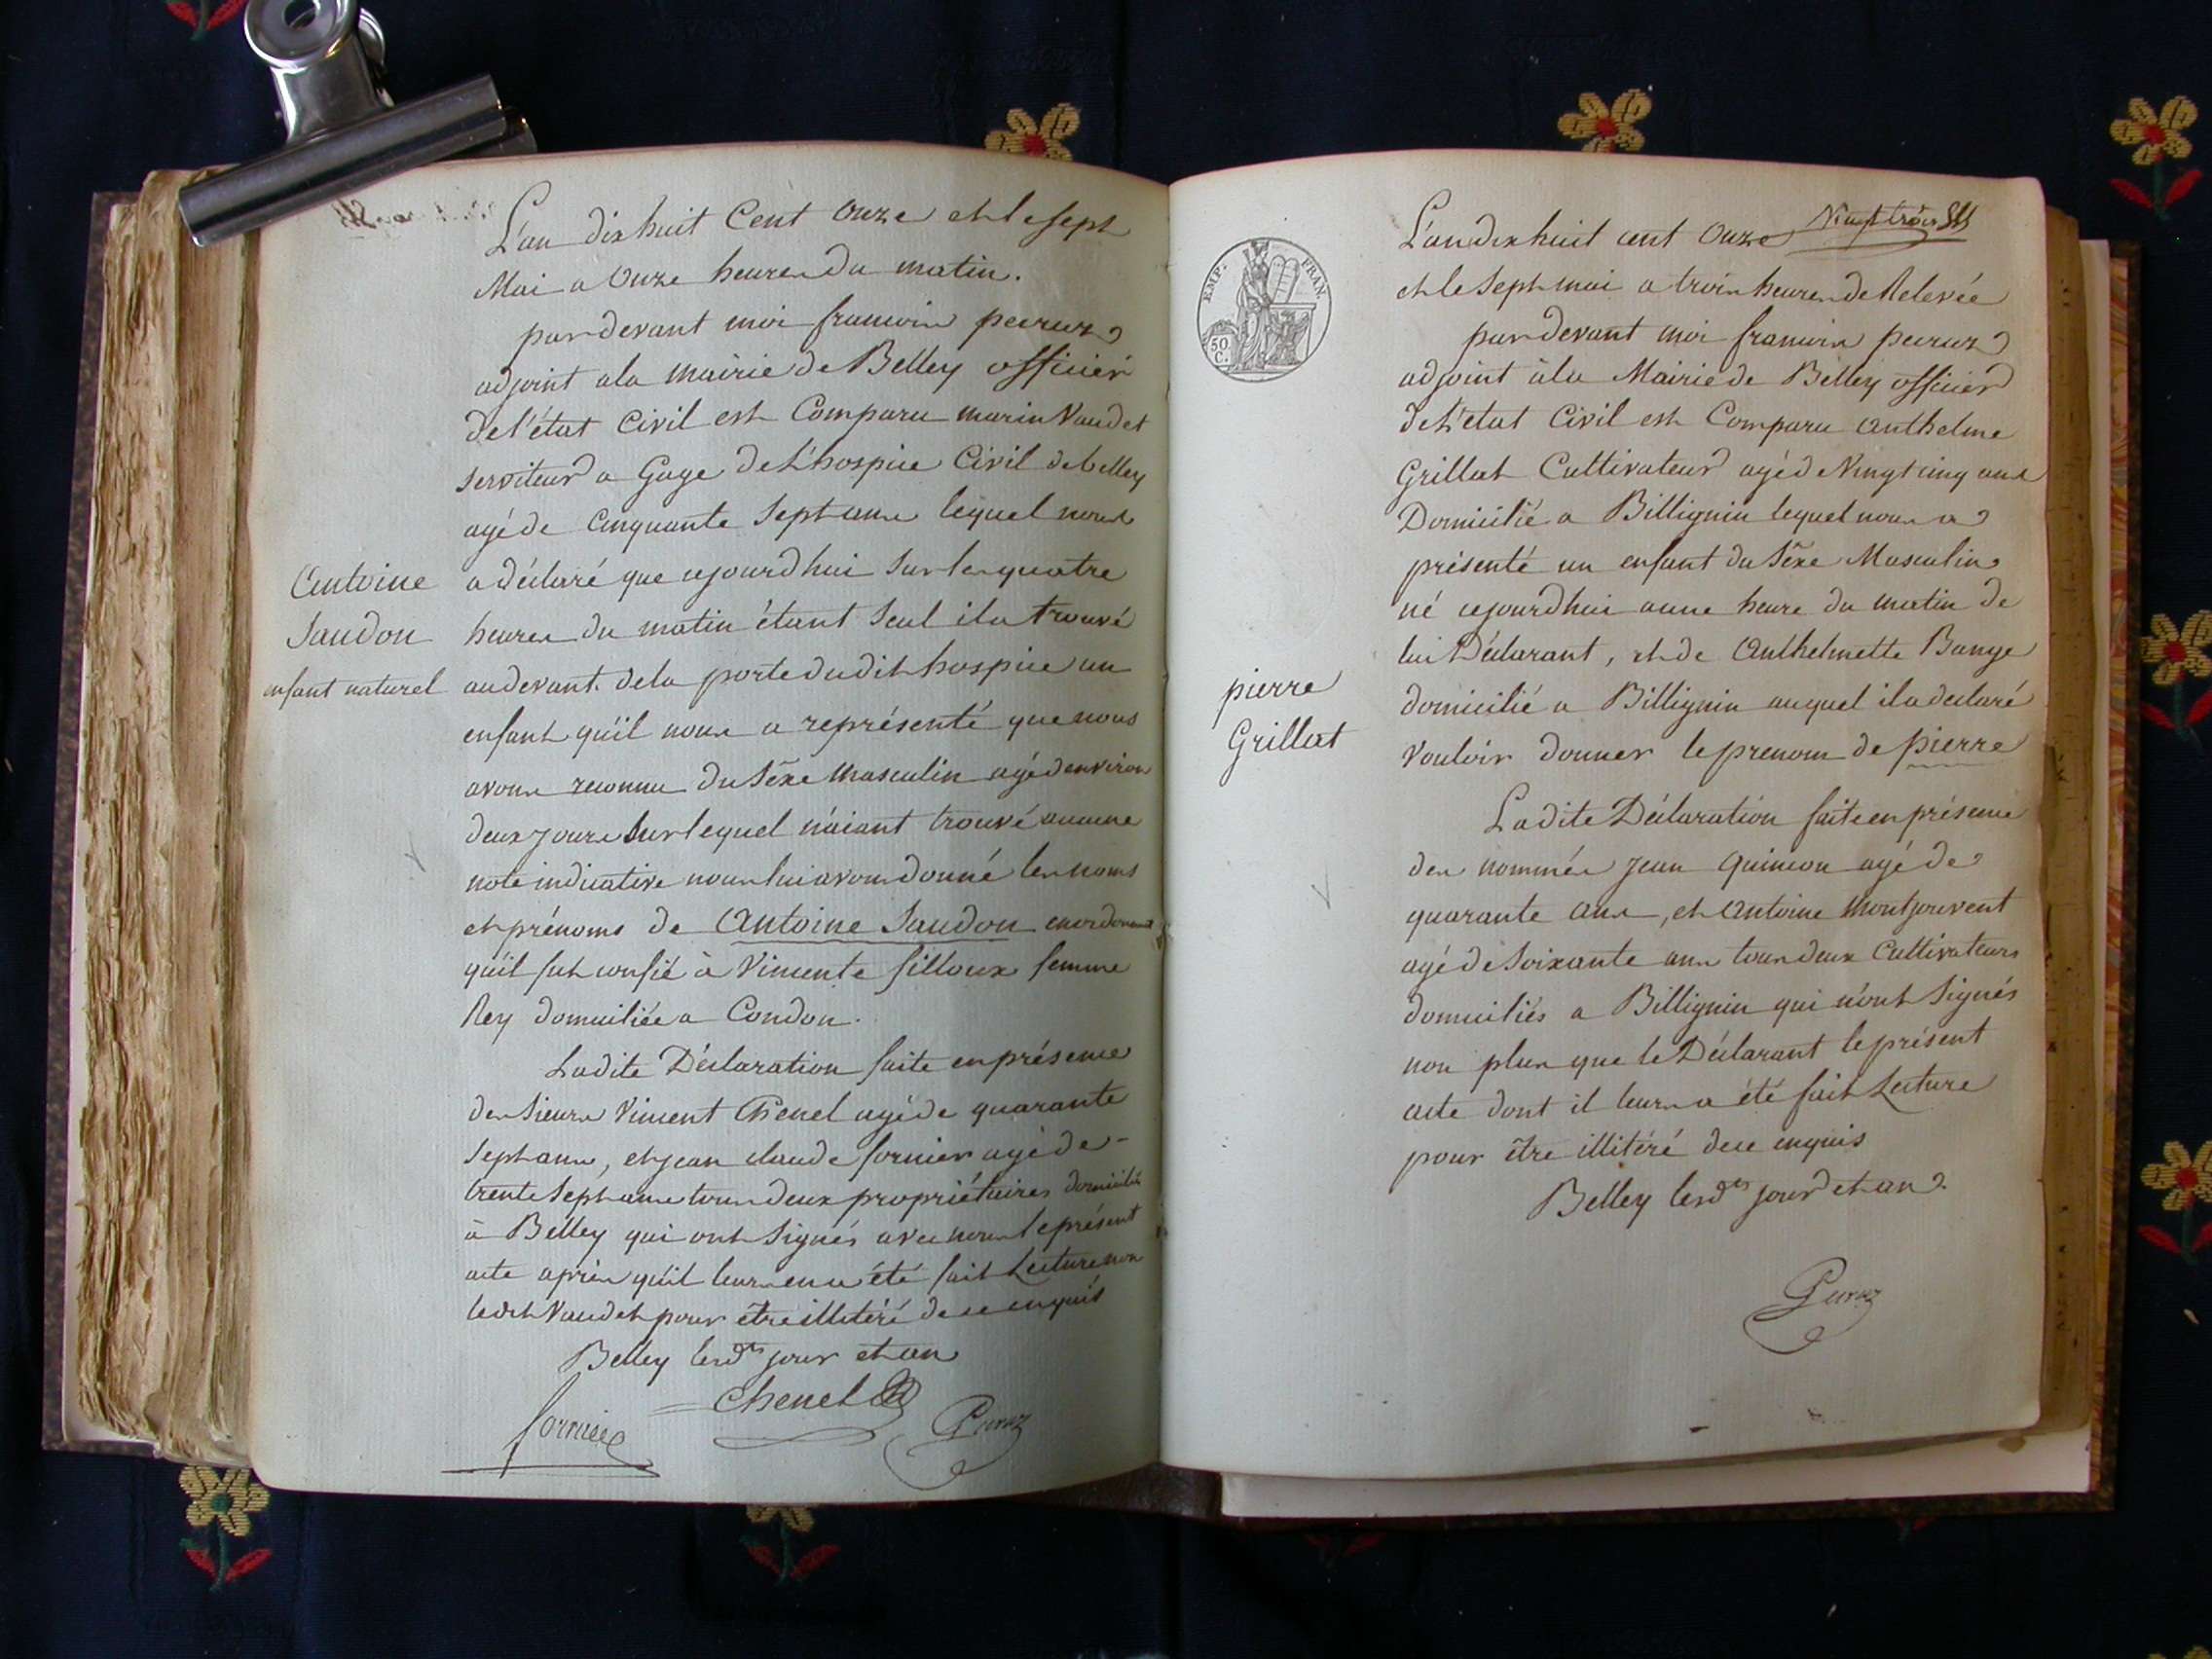 L'an dix huit Cent Onze et le sept
Mai a Onze heures du matin.
par devant moi francois peeruz
adjoint a la mairie de Belley officier
de l'état Civil est Comparu marin Vaudet
serviteur a Gage de L'hospice Civil de belley
agé de Cinquante Sept ans lequel nous
a déclaré que cejourd'hui sur les quatre
heures du matin étant seul il a trouvé
au devant de la porte dudit hospice un
enfant qu'il nous a représenté que nous
avons reconnu du Sèxe Masculin agé d'environ
deux jours sur lequel n'aiant trouvé aucune
note indicative nous lui avons donné les noms
et prénoms de Antoine Jaudon
qu'il fut confié à Vincente filloux femme
Rey domiciliée a Condon.
Ladite Déclaration faite en présence
des Sieurs Vincent Chenel agé de quarante
Sept ans, et jean claude fornier agé de
trente Sept ans tous deux propriétaires domiciliés
à Belley qui ont Signés avec nous le présent
acte après qu'il leurs en a été fait Lecture non
ledit Vaudet pour être illitéré de ce enquis
Belley lesdts jour et an
fornier
Chenel
Peeruz
Antoine
Jaudon
enfant naturel
Vingt trois
L'an dix huit cent Onze
et le Sept mai a trois heures de Relevée
par devant moi francois peeruz
adjoint à la Mairie de Belley officier
de L'etat Civil est Comparu Anthelme
Grillat Cultivateur agé de Vingt cinq ans
Domicilié a Billignin lequel nous a
présenté un enfant du Sèxe Masculin
né cejourd'hui a une heure du matin de
lui Déclarant, et de Anthelmette Bange
domicilié a Billignin auquel il a declaré
Vouloir donner le prenom de pierre
Ladite Déclaration faite en présence
des nommés jean Quinson agé de
quarante ans, et Antoine Montjouvent
agé de Soixante ans tous deux Cultivateurs
domiciliés a Billignin qui n'ont Signés
non plus que le Déclarant le présent
acte dont il leurs a été fait Lecture
pour être illitéré de ce enquis
Belley lesdts jour et an
Peeruz
pierre
Grillat
EMP. FRAN.
50
C.